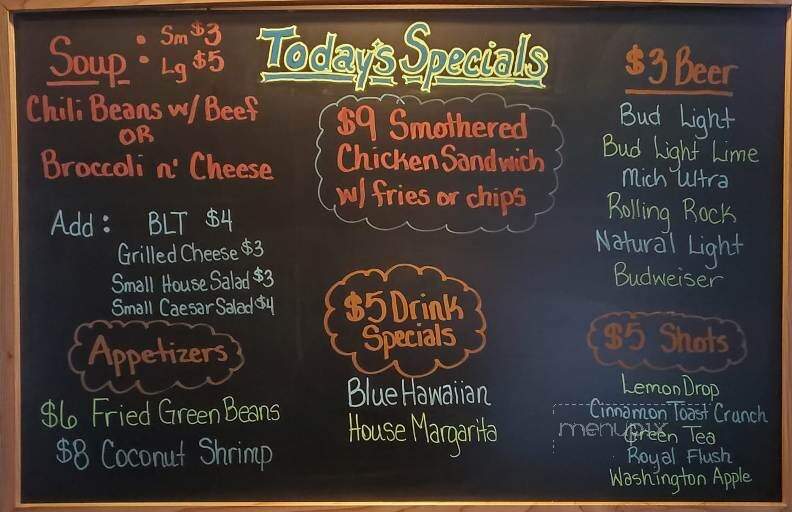 Today's Specials
Soup : Sm $3
Lg $5
Chili Beans w/ Beef
OR
Broccoli n' Cheese
Add : BLT $4
Grilled Cheese $3
Small House Salad $3
Small Caesar Salad $4
Appetizers
$6 Fried Green Beans
$8 Coconut Shrimp
$9 Smothered
Chicken Sandwich
w/ fries or chips
$5 Drink
Specials
Blue Hawaiian
House Margarita
$3 Beer
Bud Light
Bud Light Lime
Mich Ultra
Rolling Rock
Natural Light
Budweiser
$5 Shots
Lemon Drop
Cinnamon Toast Crunch
Green Tea
Royal Flush
Washington Apple
menupix